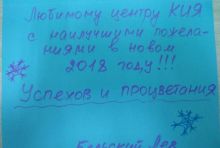 Любимому центру КИЯ
с наилучшими пожела-
ниями в новом
2018 году!!!
Успехов и процветания
Бельский Лев